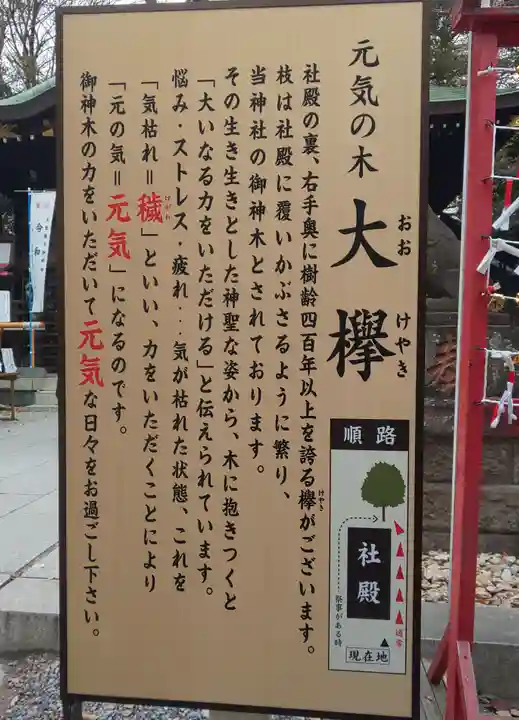 元気の木
大欅
おお
けやき
社殿の裏、右手奥に樹齢四百年以上を誇る欅がございます。
けやき
枝は社殿に覆いかぶさるように繁り、
当神社の御神木とされております。
その生き生きとした神聖な姿から、木に抱きつくと
「大いなる力をいただける」と伝えられています。
悩み・ストレス・疲れ・・気が枯れた状態、これを
「気枯れ＝穢」といい、力をいただくことにより
けがれ
「元の気＝元気」になるのです。
御神木の力をいただいて元気な日々をお過ごし下さい。
順路
社殿
祭事がある時
通常
現在地
令和